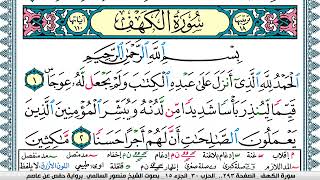 سُورَةُ الْكَهْفِ
بِسْمِ اللَّهِ الرَّحْمَٰنِ الرَّحِيمِ
الْحَمْدُ لِلَّهِ الَّذِي أَنزَلَ عَلَىٰ عَبْدِهِ الْكِتَابَ وَلَمْ يَجْعَل لَّهُ عِوَجًا ١
قَيِّمًا لِّيُنذِرَ بَأْسًا شَدِيدًا مِّن لَّدُنْهُ وَيُبَشِّرَ الْمُؤْمِنِينَ الَّذِينَ
يَعْمَلُونَ الصَّالِحَاتِ أَنَّ لَهُمْ أَجْرًا حَسَنًا ٢ مَّاكِثِينَ
سورة الكهف - الصفحة ٢٩٣ - الجزء ١٥ بصوت الشيخ منصور السالمي برواية حفص عن عاصم